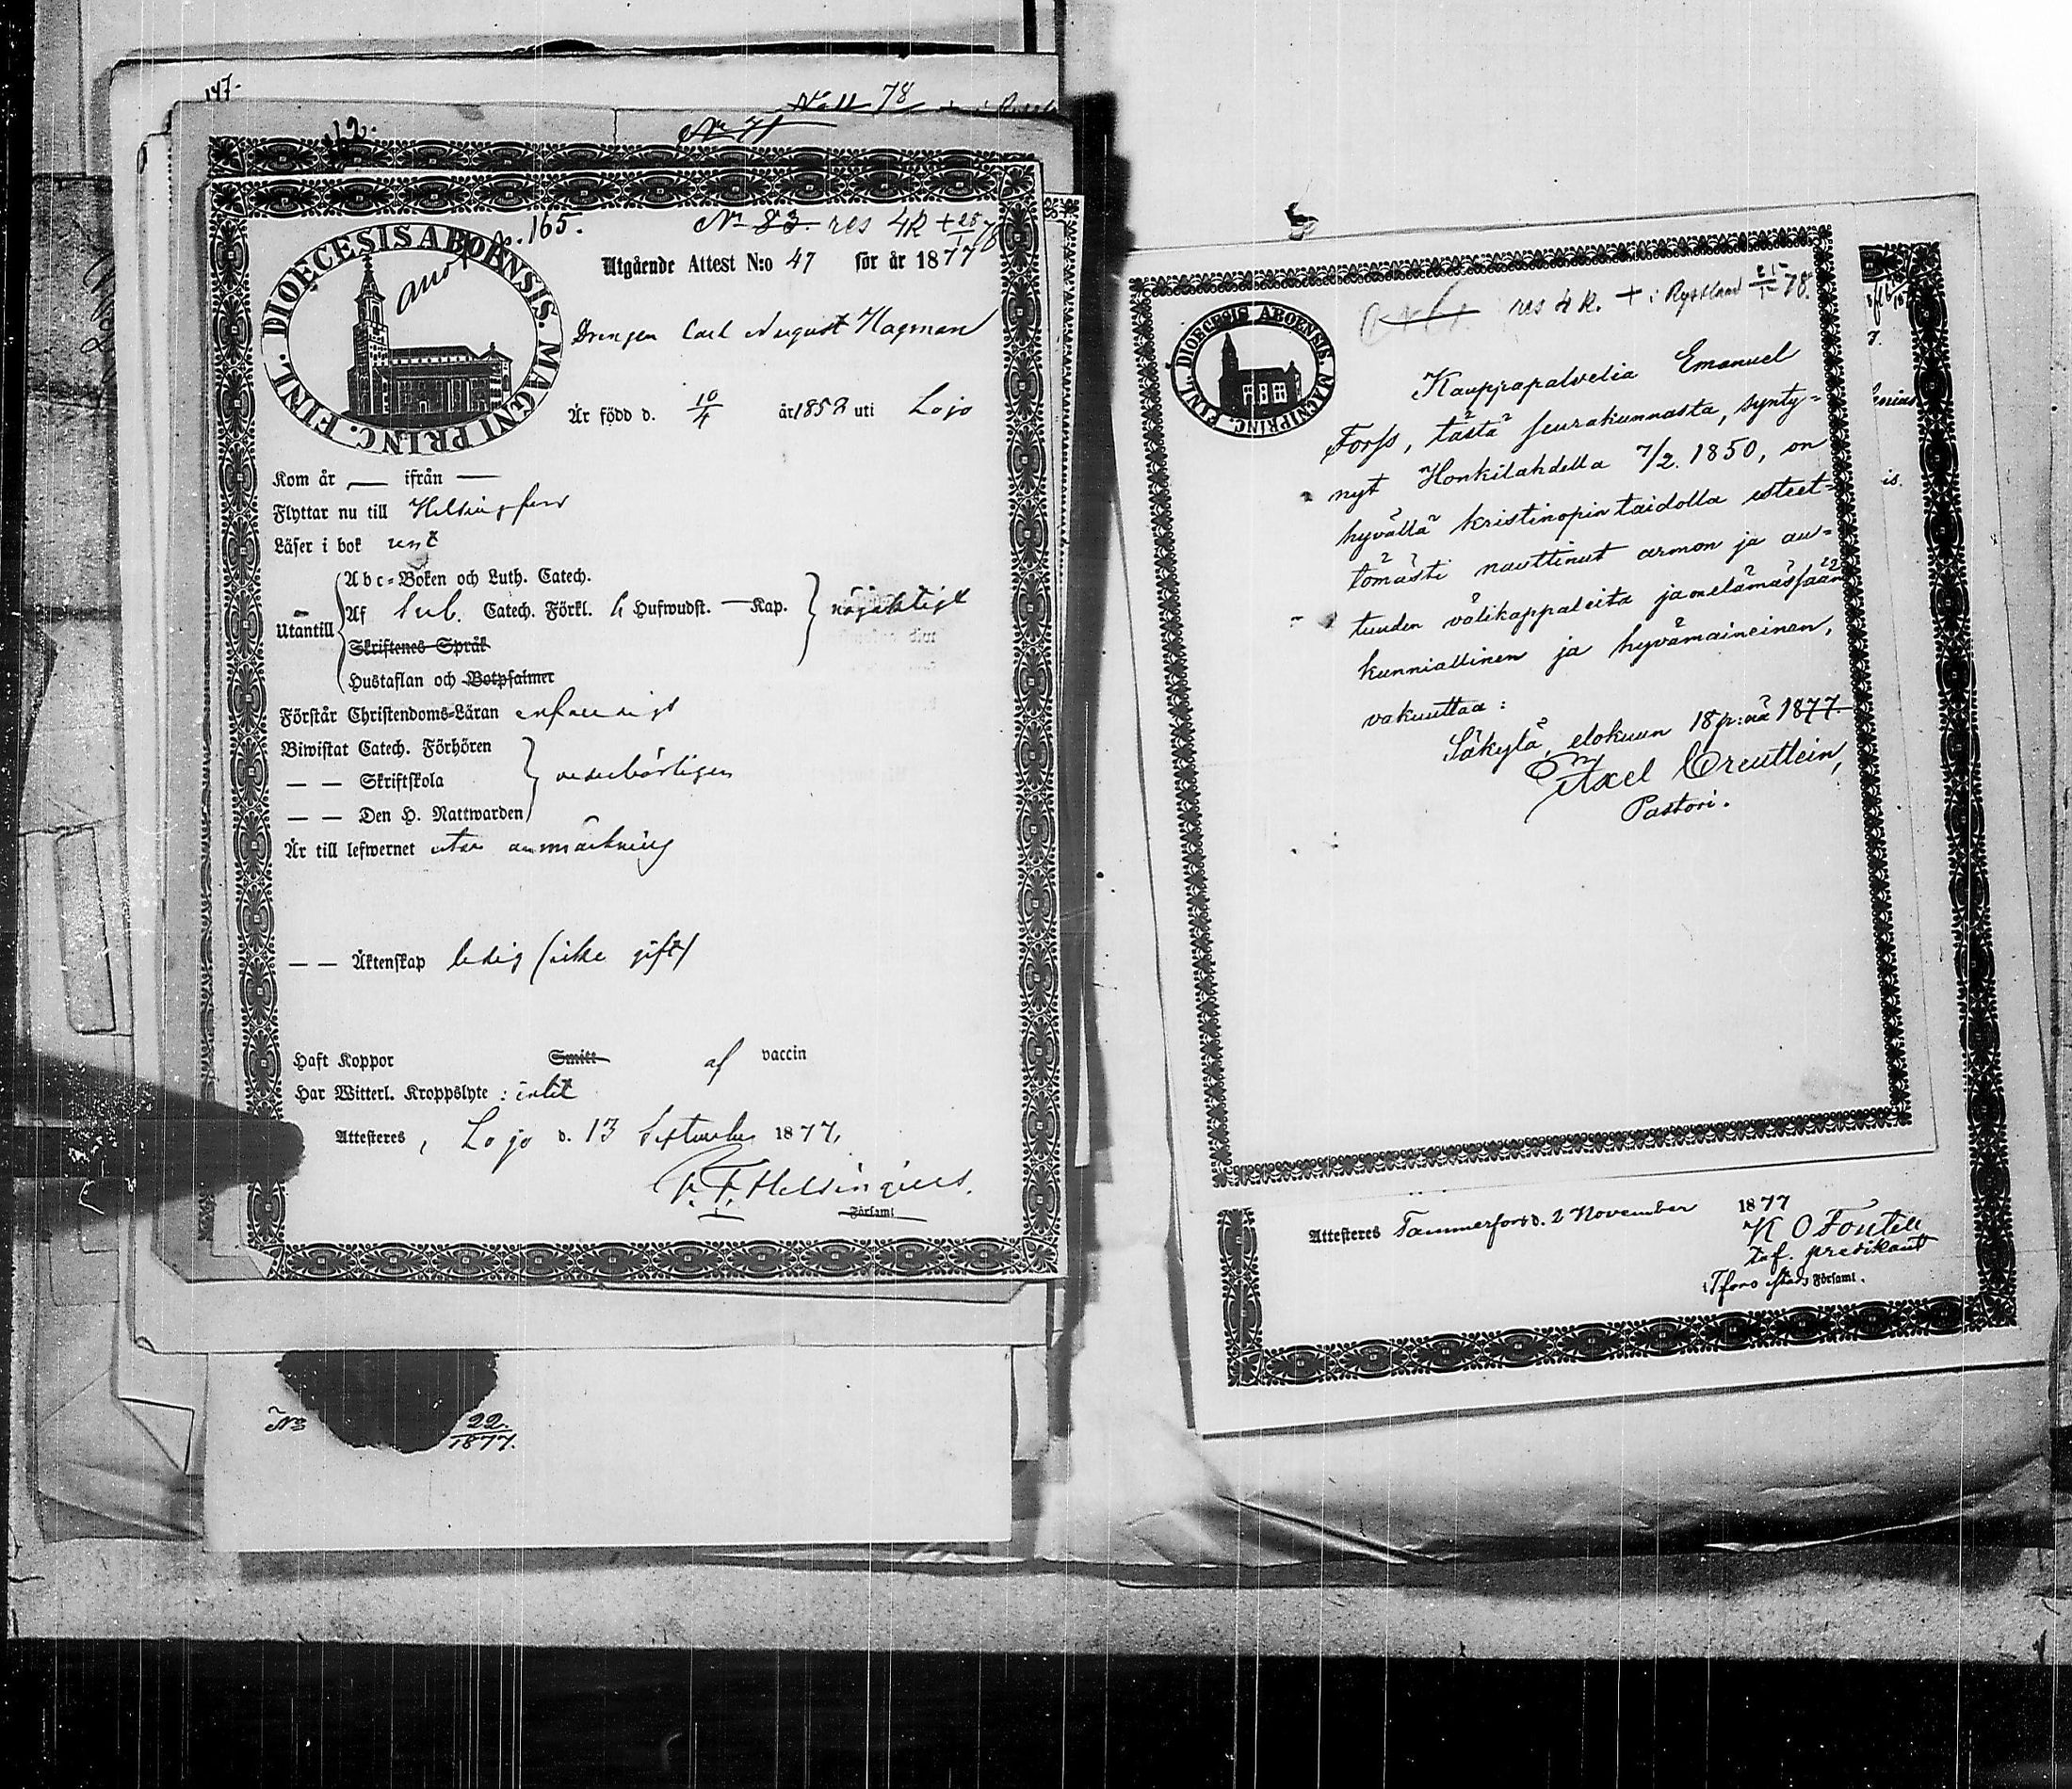 147.
No 11 78
12.
No 71
p. 165.
No 83. res 4R + 25/1 78
DIOECESIS ABOENSIS. MAGNI PRINC. FINL.
Utgående Attest N:o 47 för år 1877
Drengen Carl August Hagman
Är född d. 10/4 år 1852 uti Lojo
Kom år — ifrån —
Flyttar nu till Helsingfors
Läser i bok rent
Abc-Boken och Luth. Catech.
Utantill Af Sveb. Catech. Förkl. 4 Hufwudst. — Kap. nöjaktigt
Skriftenes Språk
Hustaflan och Botpsalmer
Förstår Christendoms-Läran enfaldigt
Biwistat Catech. Förhören
— — Skriftskola vederbörligen
— — Den H. Nattwarden
Är till lefwernet utan anmärkning
— — Äktenskap ledig (icke gift)
Haft Koppor Smitt af vaccin
Har Witterl. Kroppslyte : intet
Attesteres, Lojo d. 13 September 1877.
F. Helsingius.
i Församl
No 22./1877.
res 4 R. + i Ryssland 21/1 78.
DIOECESIS ABOENSIS. MAGNI PRINC. FINL.
Kauppapalvelia Emanuel
Forss, tästä seurakunnasta, synty-
nyt Honkilahdella 7/2. 1850, on
hyvällä kristinopin taidolla esteet-
tömästi nauttinut armon ja au-
tuuden välikappaleita ja elämässään
kunniallinen ja hyvämaineinen,
vakuuttaa:
Säkylä, elokuun 18 p:nä 1877.
Axel Creutlein,
Pastori.
is.
Attesteres Tammerfors d. 2 November 1877
K O Fontell
Tjf. predikant
Tfors stads Församl.